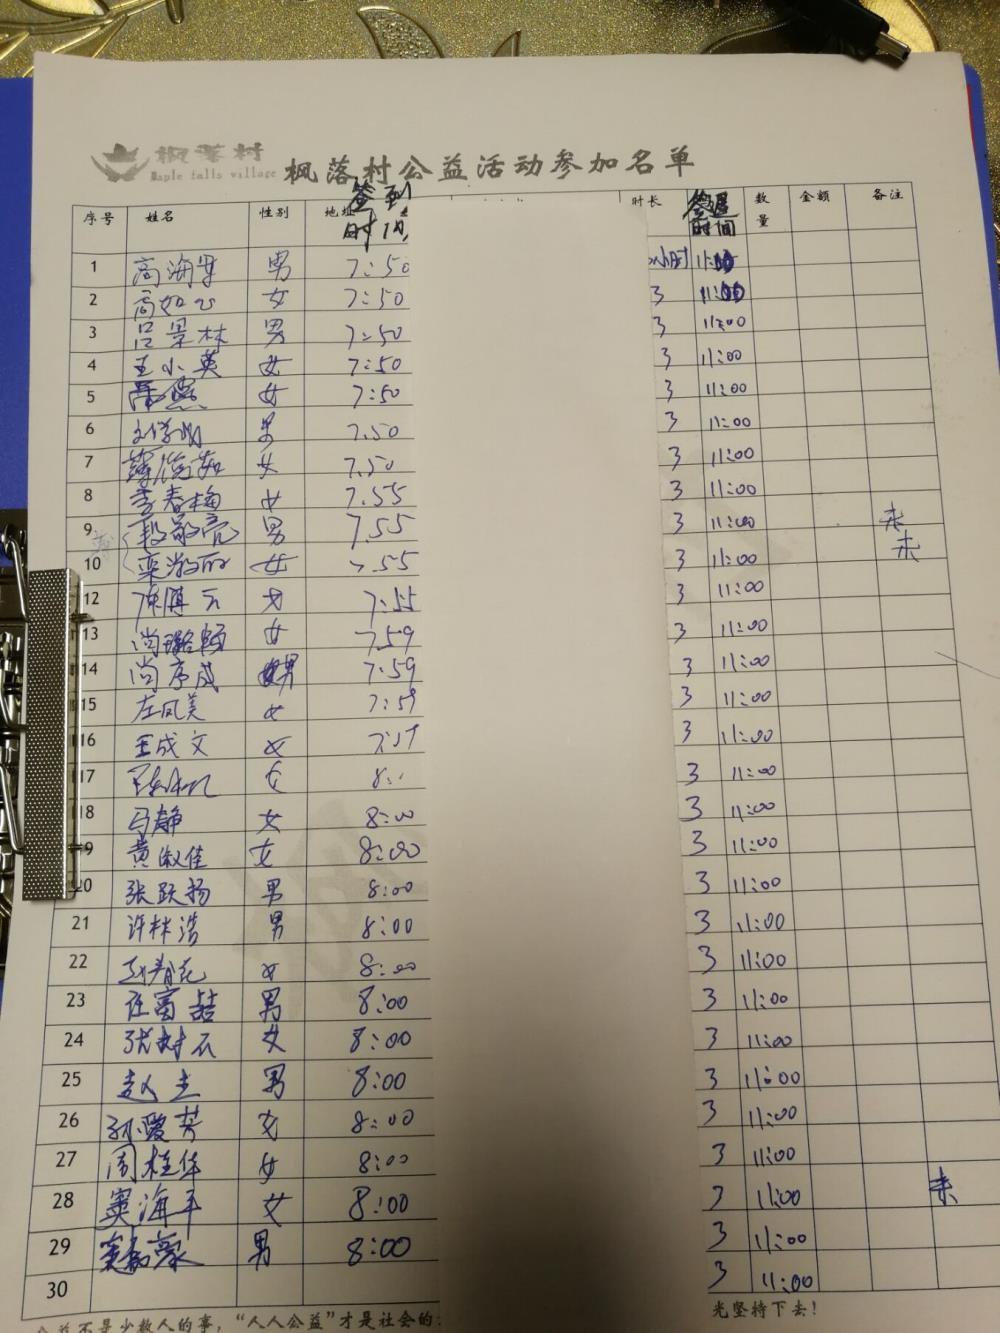 枫落村
Maple falls village
枫落村公益活动参加名单
序号 姓名 性别 地址 签到时间 时长 签退时间 数量 金额 备注
1 高海 男 7:50 小时 11:00
2 高如心 女 7:50 3 11:00
3 吕景林 男 7:50 3 11:00
4 王小英 女 7:50 3 11:00
5 女 7:50 3 11:00
6 男 7.50 3 11:00
7 薄俊茹 女 7.50 3 11:00
8 李春梅 女 7.55 3 11:00
9 段敬亮 男 7.55 3 11:00 未
10 栾淑丽 女 7.55 3 11:00 未
12 陈 女 7:55 3 11:00
13 尚璐 女 7.59 3 11:00
14 尚序成 男 7:59 3 11:00
15 左凤美 女 7:59 3 11:00
16 王成文 女 3 11:00
17 女 8: 3 11:00
18 马静 女 8:00 3 11:00
19 黄淑佳 女 8:00 3 11:00
20 张跃扬 男 8:00 3 11:00
21 许林浩 男 8:00 3 11:00
22 女 8:00 3 11:00
23 任富喆 男 8:00 3 11:00
24 张树石 女 8:00 3 11:00
25 赵杰 男 8:00 3 11:00
26 孙爱芳 女 8:00 3 11:00
27 周桂华 女 8:00 3 11:00
28 窦海平 女 8:00 3 11:00 未
29 男 8:00 3 11:00
30 3 11:00
公益不是少数人的事，“人人公益”才是社会的 光坚持下去！